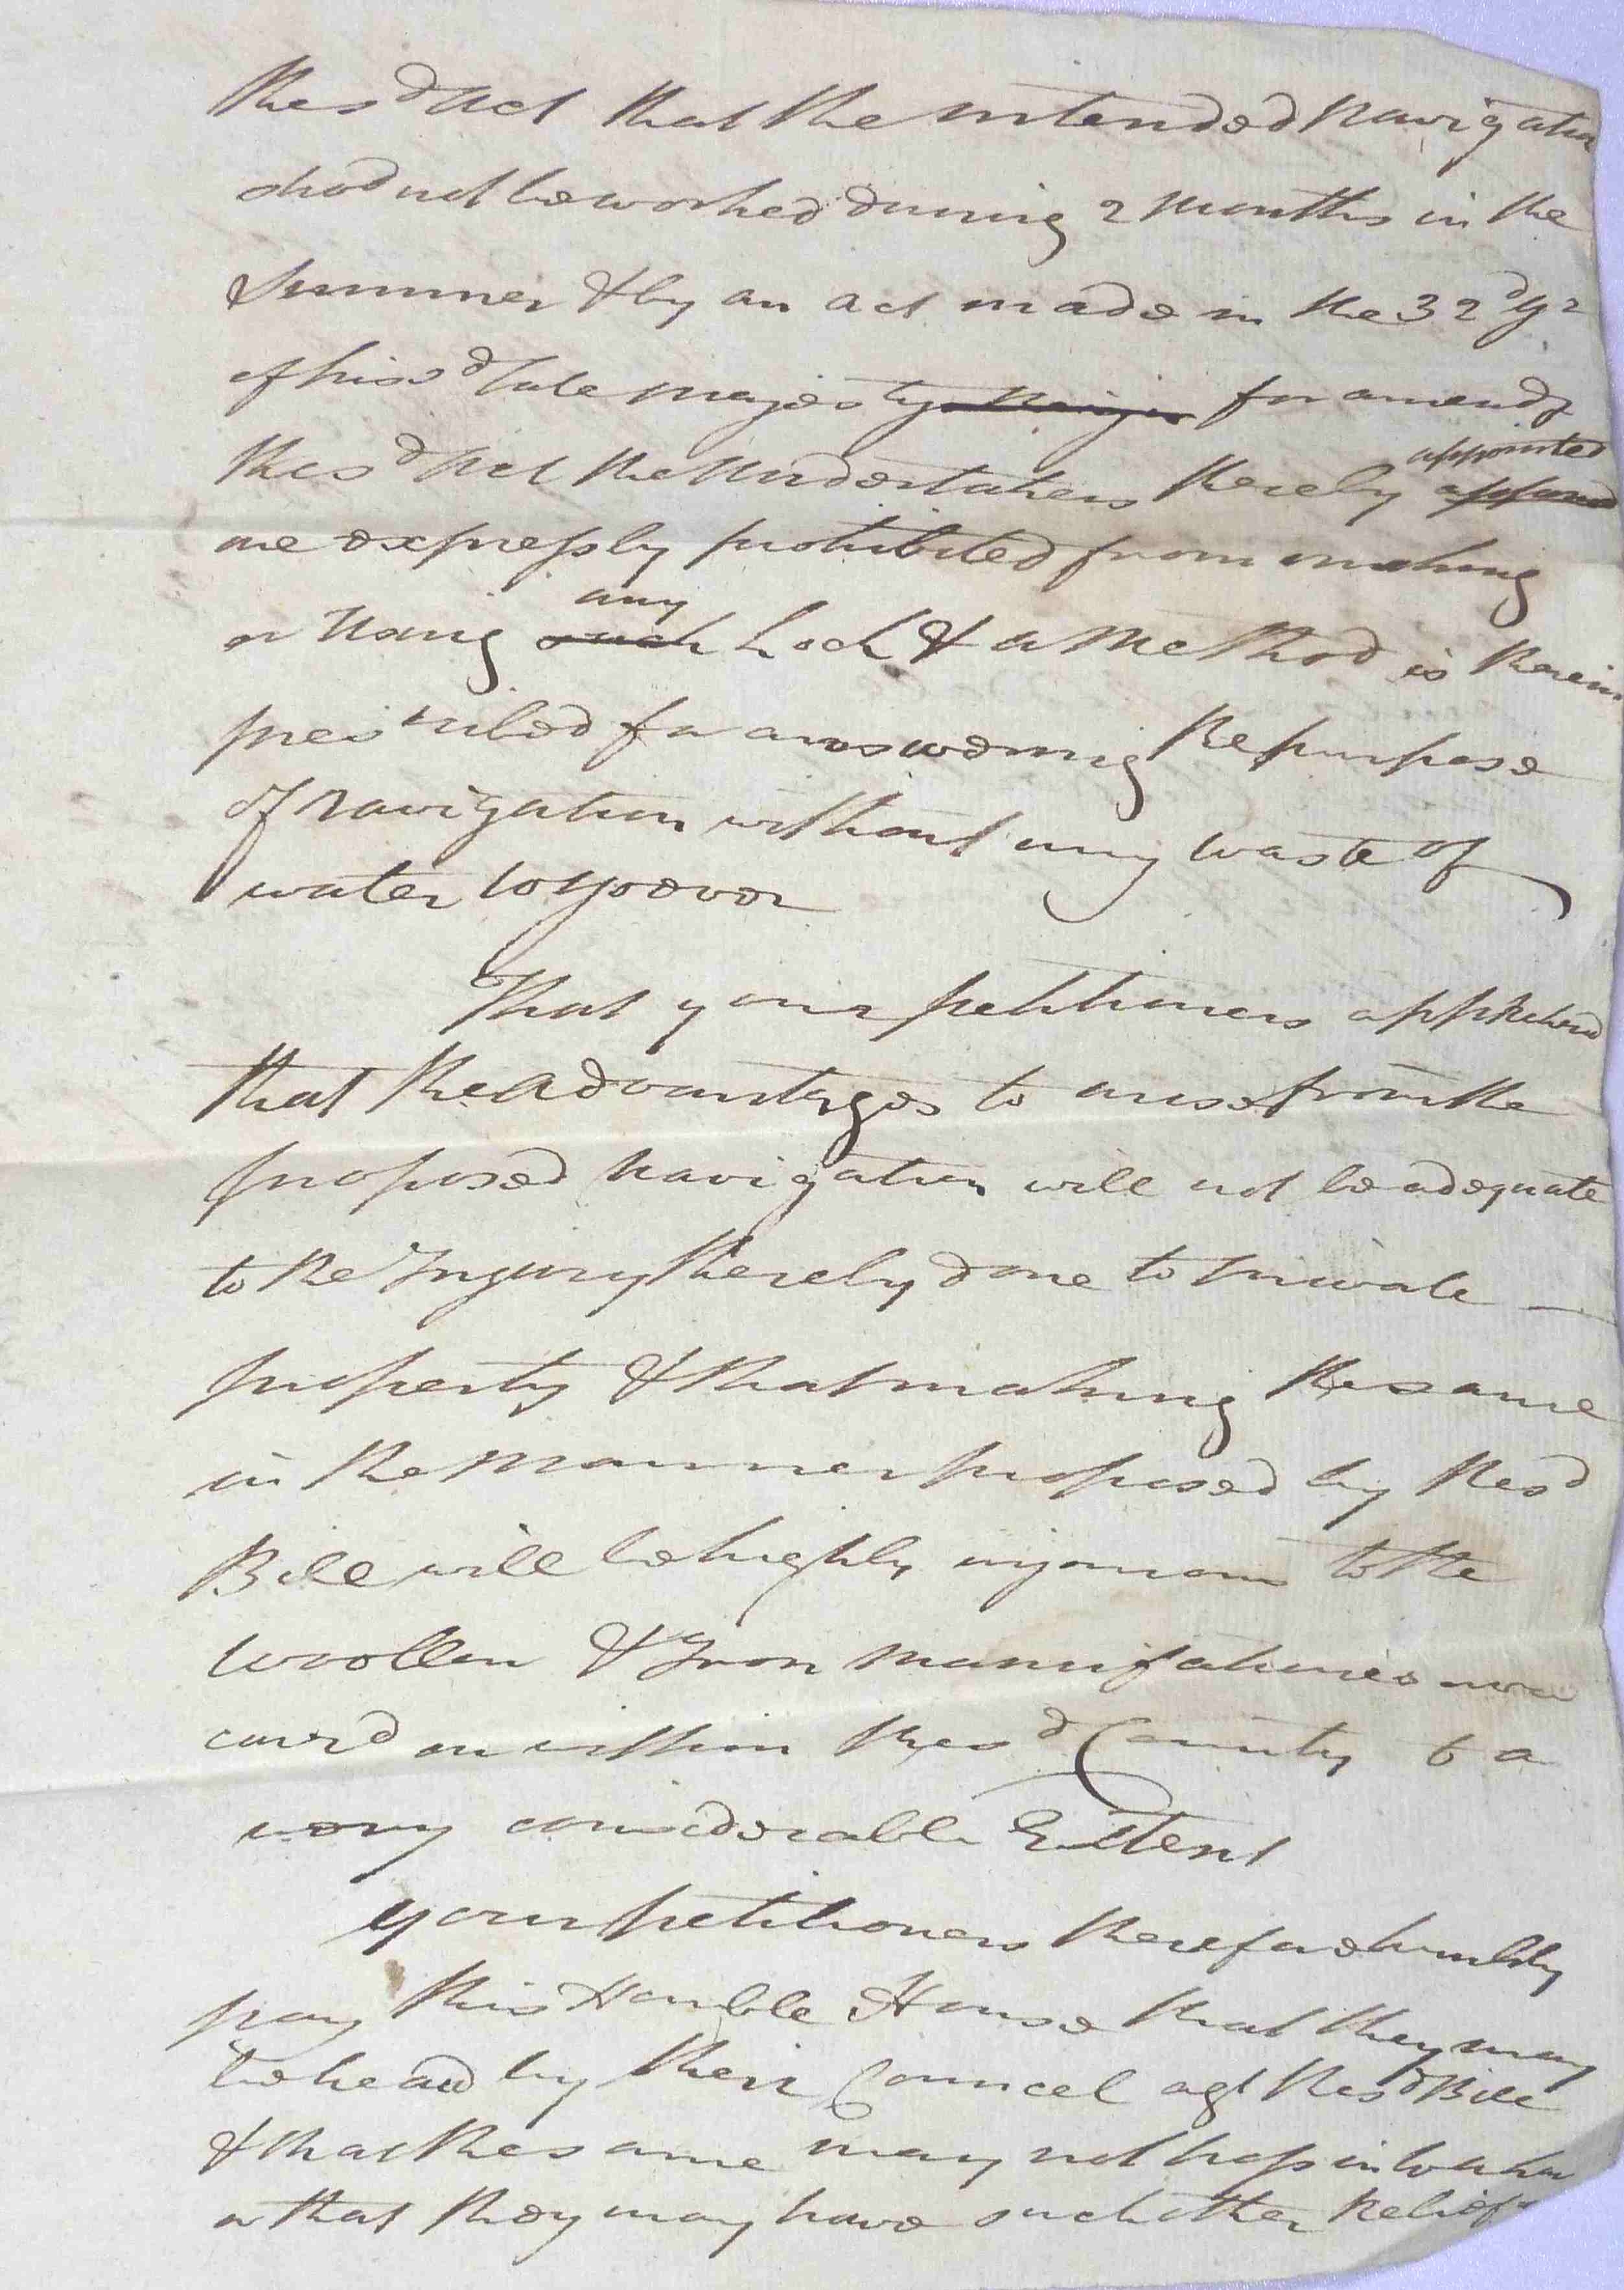 the sd Act that the intended Navigation
shod not be worked during 2 Months in the
Summer & by an act made in the 32d yr
of his sd late Majesty for amendg
the sd Act the Undertakers thereby appointed
are expressly prohibited from making
or Using any such Lock & a Method is therein
prescribed for answering the purpose
of Navigation without any waste of
water wsoever
That your petitioners apprehend
that the Advantages to arise from the
proposed Navigation will not be adequate
to the Injury thereby done to private
property & that making the same
in the Manner proposed by the sd
Bill will be highly injurious to the
Woollen & Iron Manufactures now
carrd on within the sd County to a
very considerable Extent
your petitioners therefore humbly
pray this Honble House that they may
be heard by their Councel agt the sd Bill
& that the same may not pass into a Law
or that they may have such other Relief